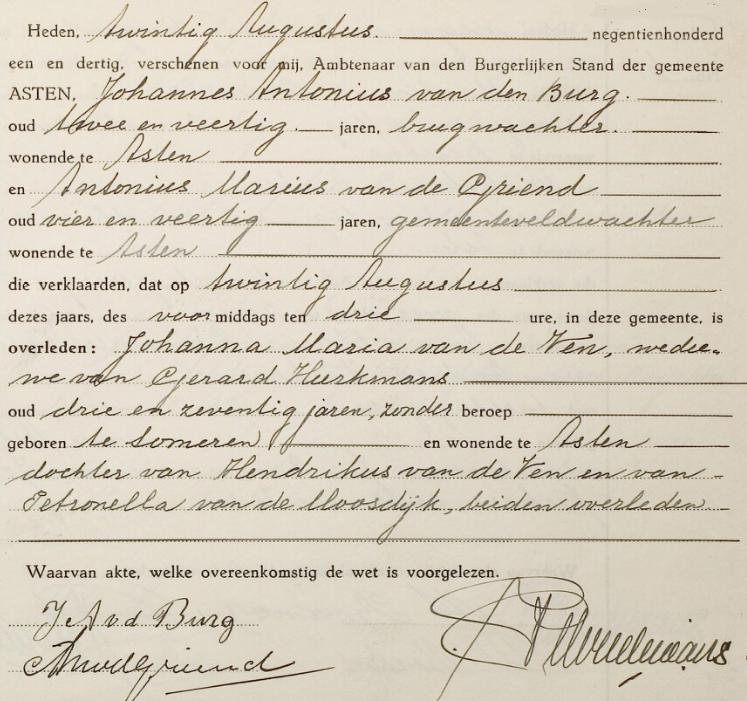 Heden, twintig Augustus. negentienhonderd
een en dertig, verschenen voor mij, Ambtenaar van den Burgerlijken Stand der gemeente
ASTEN, Johannes Antonius van den Burg.
oud twee en veertig jaren, brugwachter.
wonende te Asten
en Antonius Marius van de Griend
oud vier en veertig jaren, gemeenteveldwachter
wonende te Asten
die verklaarden, dat op twintig Augustus
dezes jaars, des voormiddags ten drie ure, in deze gemeente, is
overleden: Johanna Maria van de Ven, wedu-
we van Gerard Hurkmans
oud drie en zeventig jaren, zonder beroep
geboren te Someren en wonende te Asten
dochter van Hendrikus van de Ven en van
Petronella van de Moosdijk, beiden overleden
Waarvan akte, welke overeenkomstig de wet is voorgelezen.
J A v d Burg
AMvdGriend